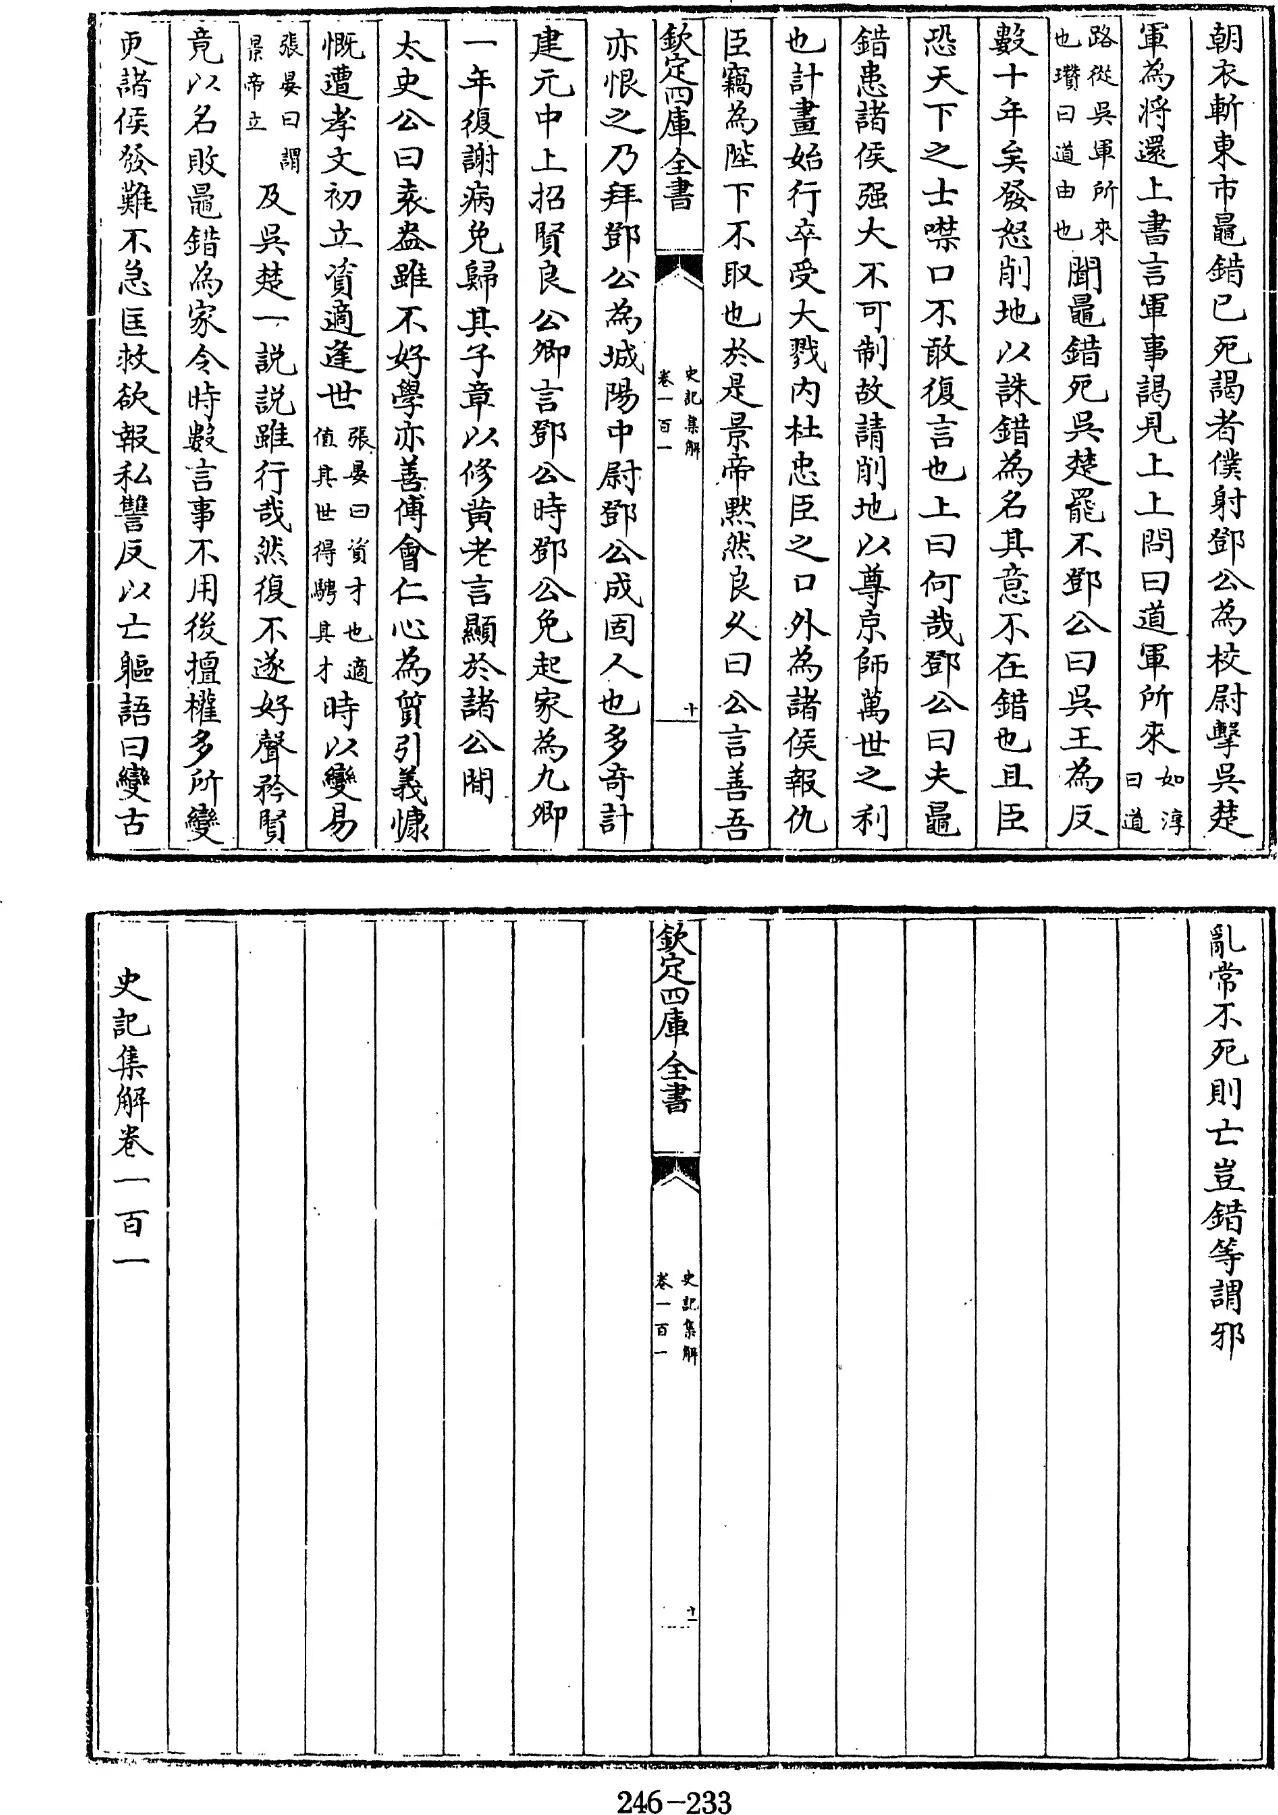 朝衣斬東市鼂錯已死謁者僕射鄧公為校尉擊吳楚
軍為將還上書言軍事謁見上上問曰道軍所來如淳曰道
路從吳軍所來也瓚曰道由也聞鼂錯死吳楚罷不鄧公曰吳王為反
數十年矣發怒削地以誅錯為名其意不在錯也且臣
恐天下之士噤口不敢復言也上曰何哉鄧公曰夫鼂
錯患諸侯强大不可制故請削地以尊京師萬世之利
也計畫始行卒受大戮內杜忠臣之口外為諸侯報仇
臣竊為陛下不取也於是景帝黙然良乆曰公言善吾
欽定四庫全書
史記集解
卷一百一
十
亦恨之乃拜鄧公為城陽中尉鄧公成固人也多奇計
建元中上招賢良公卿言鄧公時鄧公免起家為九卿
一年復謝病免歸其子章以修黄老言顯於諸公間
太史公曰袁盎雖不好學亦善傅會仁心為質引義慷
慨遭孝文初立資適逢世張晏曰資才也適值其世得騁其才時以變易
張晏曰謂景帝立及吳楚一説説雖行哉然復不遂好聲矜賢
竟以名敗鼂錯為家令時數言事不用後擅權多所變
更諸侯發難不急匡救欲報私讐反以亡軀語曰變古
亂常不死則亡豈錯等謂邪
欽定四庫全書
史記集解
卷一百一
十一
史記集解卷一百一
246-233